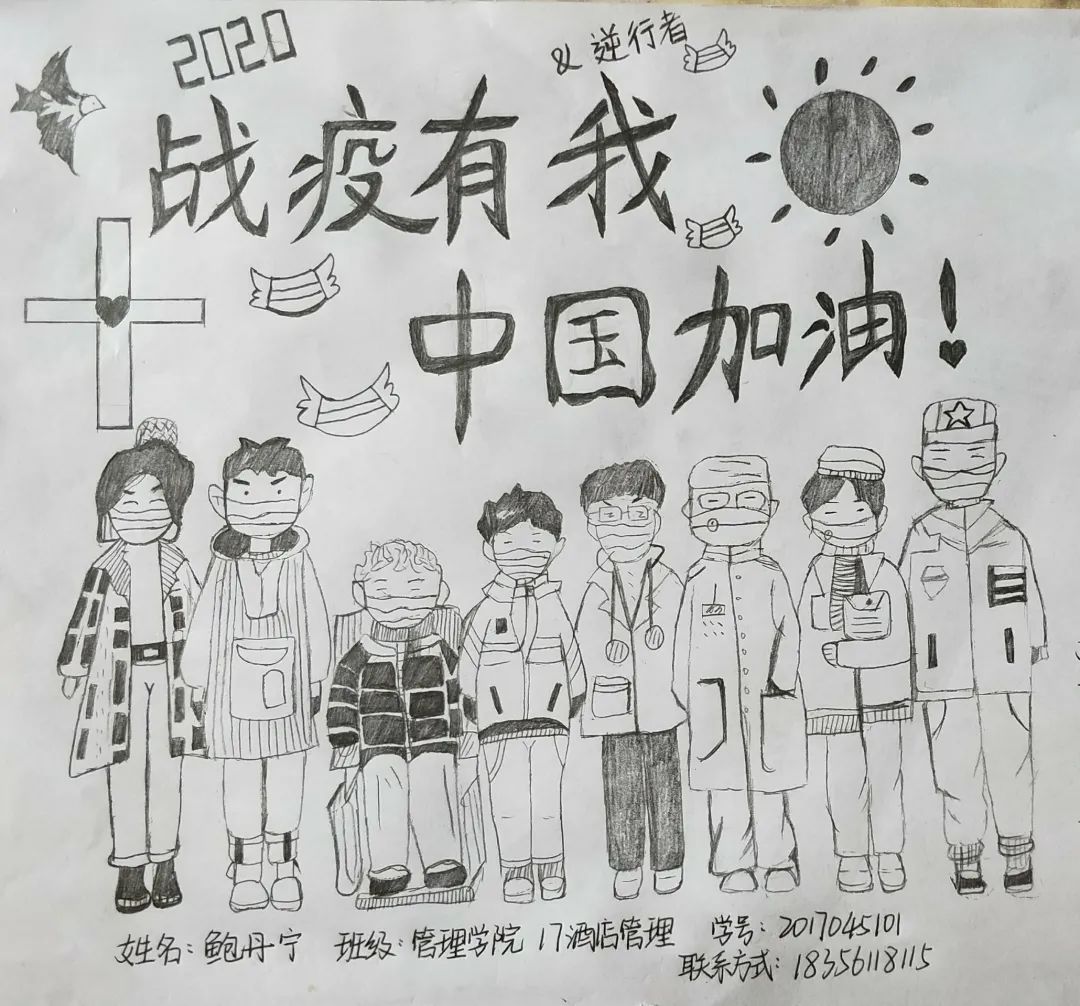 2020
& 逆行者
战疫有我
中国加油!
姓名:鲍丹宁 班级:管理学院 17酒店管理 学号:2017045101
联系方式:18356118115